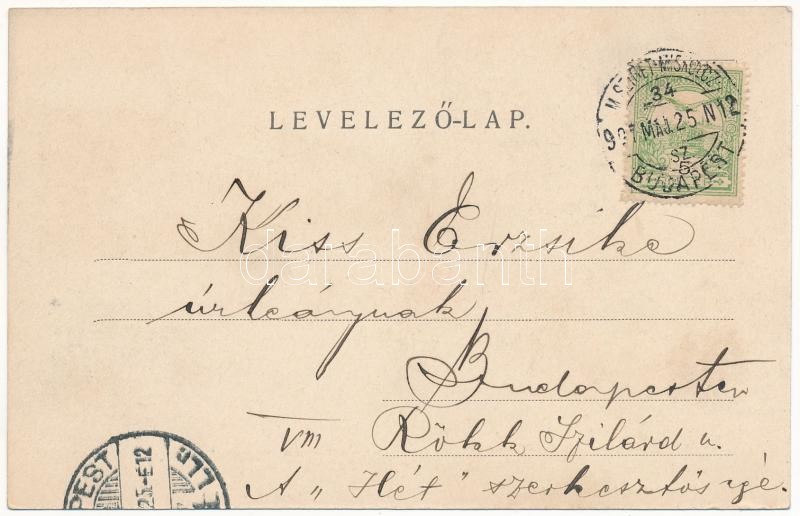 LEVELEZŐ-LAP.
M. SZIGET-MISKOLCZ-
34
907 MÁJ. 25 N12
SZ
5
BUDAPEST
Kiss Erzsike
darabanth
úrleánynak
Budapesten
VIII Rökk Szilárd u.
A „Hét” szerkesztősége.
PEST
25-E12